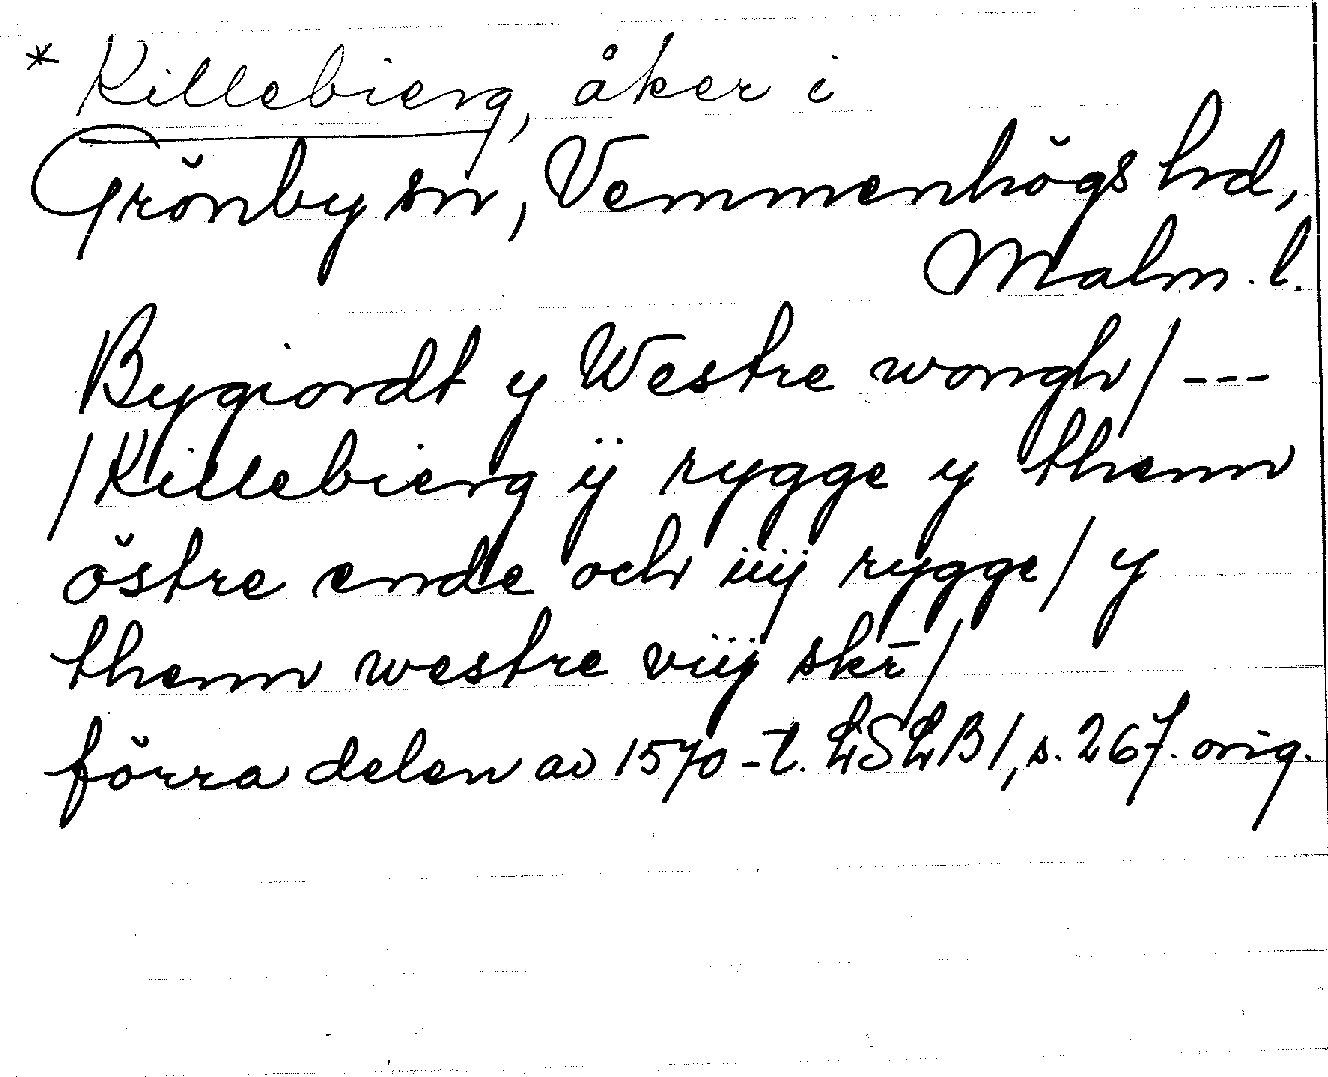 * Killebierg, åker i
Grönby sn, Vemmenhögs hd,
Malm. l.
Bygiordt y Westre wongh / ---
/ Killebierg ij rygge y thenn
östre ende och iiij rygge / y
thenn westre viij skr̄ /
förra delen av 1570-t. LSLB 1, s. 267. orig.